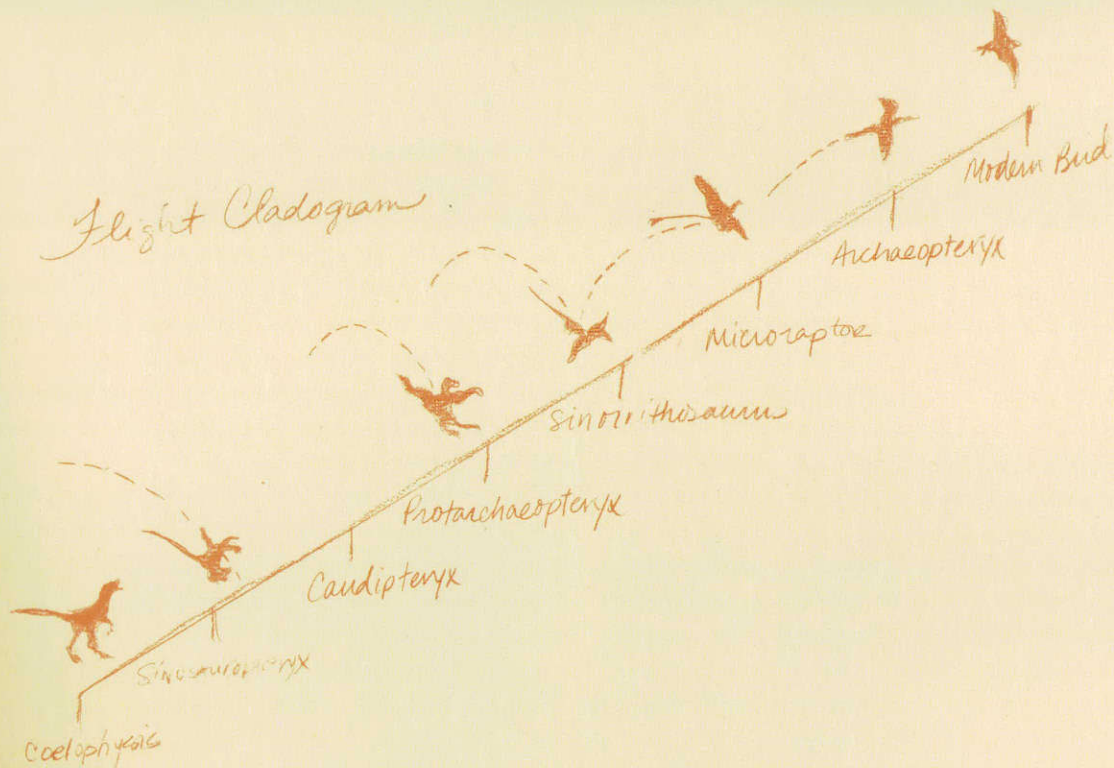 Flight Cladogram
Modern Bird
Archaeopteryx
Microraptor
Sinornithosaurus
Protarchaeopteryx
Caudipteryx
Sinosauropteryx
Coelophysis